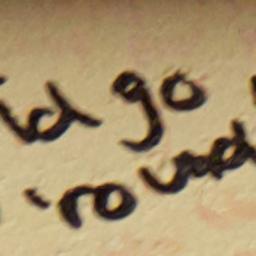 go
'round